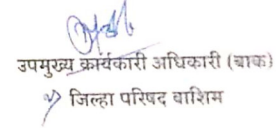 उपमुख्य कार्यकारी अधिकारी (बाक)
जिल्हा परिषद वाशिम